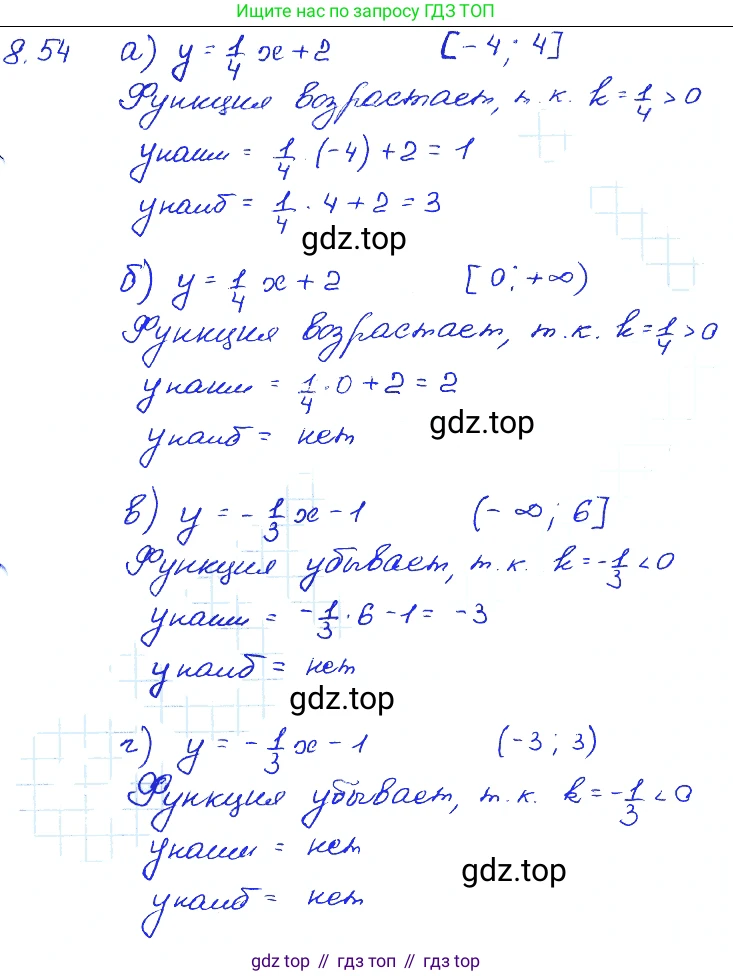 Ищите нас по запросу ГДЗ ТОП
8.54 а) y = 1/4 x + 2 [-4; 4]
Функция возрастает, т.к. k = 1/4 > 0
yнаим = 1/4 · (-4) + 2 = 1
yнаиб = 1/4 · 4 + 2 = 3
gdz.top
б) y = 1/4 x + 2 [0; +∞)
Функция возрастает, т.к. k = 1/4 > 0
yнаим = 1/4 · 0 + 2 = 2
yнаиб = нет
gdz.top
в) y = -1/3 x - 1 (-∞; 6]
Функция убывает, т.к. k = -1/3 < 0
yнаим = -1/3 · 6 - 1 = -3
yнаиб = нет
gdz.top
г) y = -1/3 x - 1 (-3; 3)
Функция убывает, т.к. k = -1/3 < 0
yнаим = нет
yнаиб = нет
gdz.top
gdz топ // гдз топ // гдз top